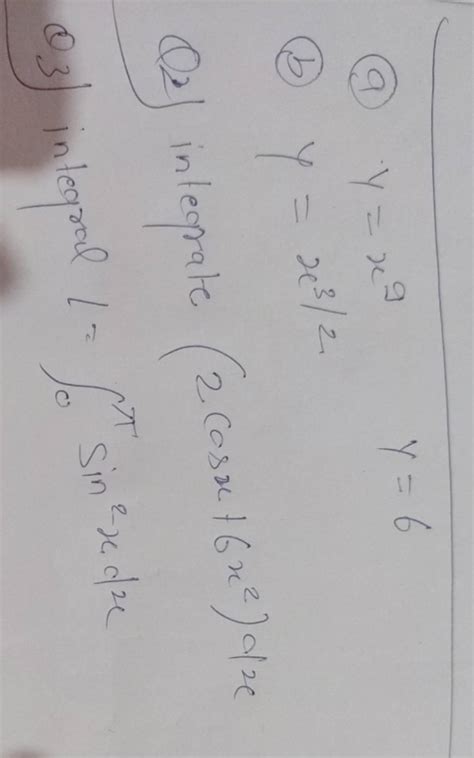 (a) y = x⁹ y = 6
(b) y = x³/²
Q2) integrate (2 cosx + 6x²) dx
Q3) integral I = ∫₀^π sin²x dx